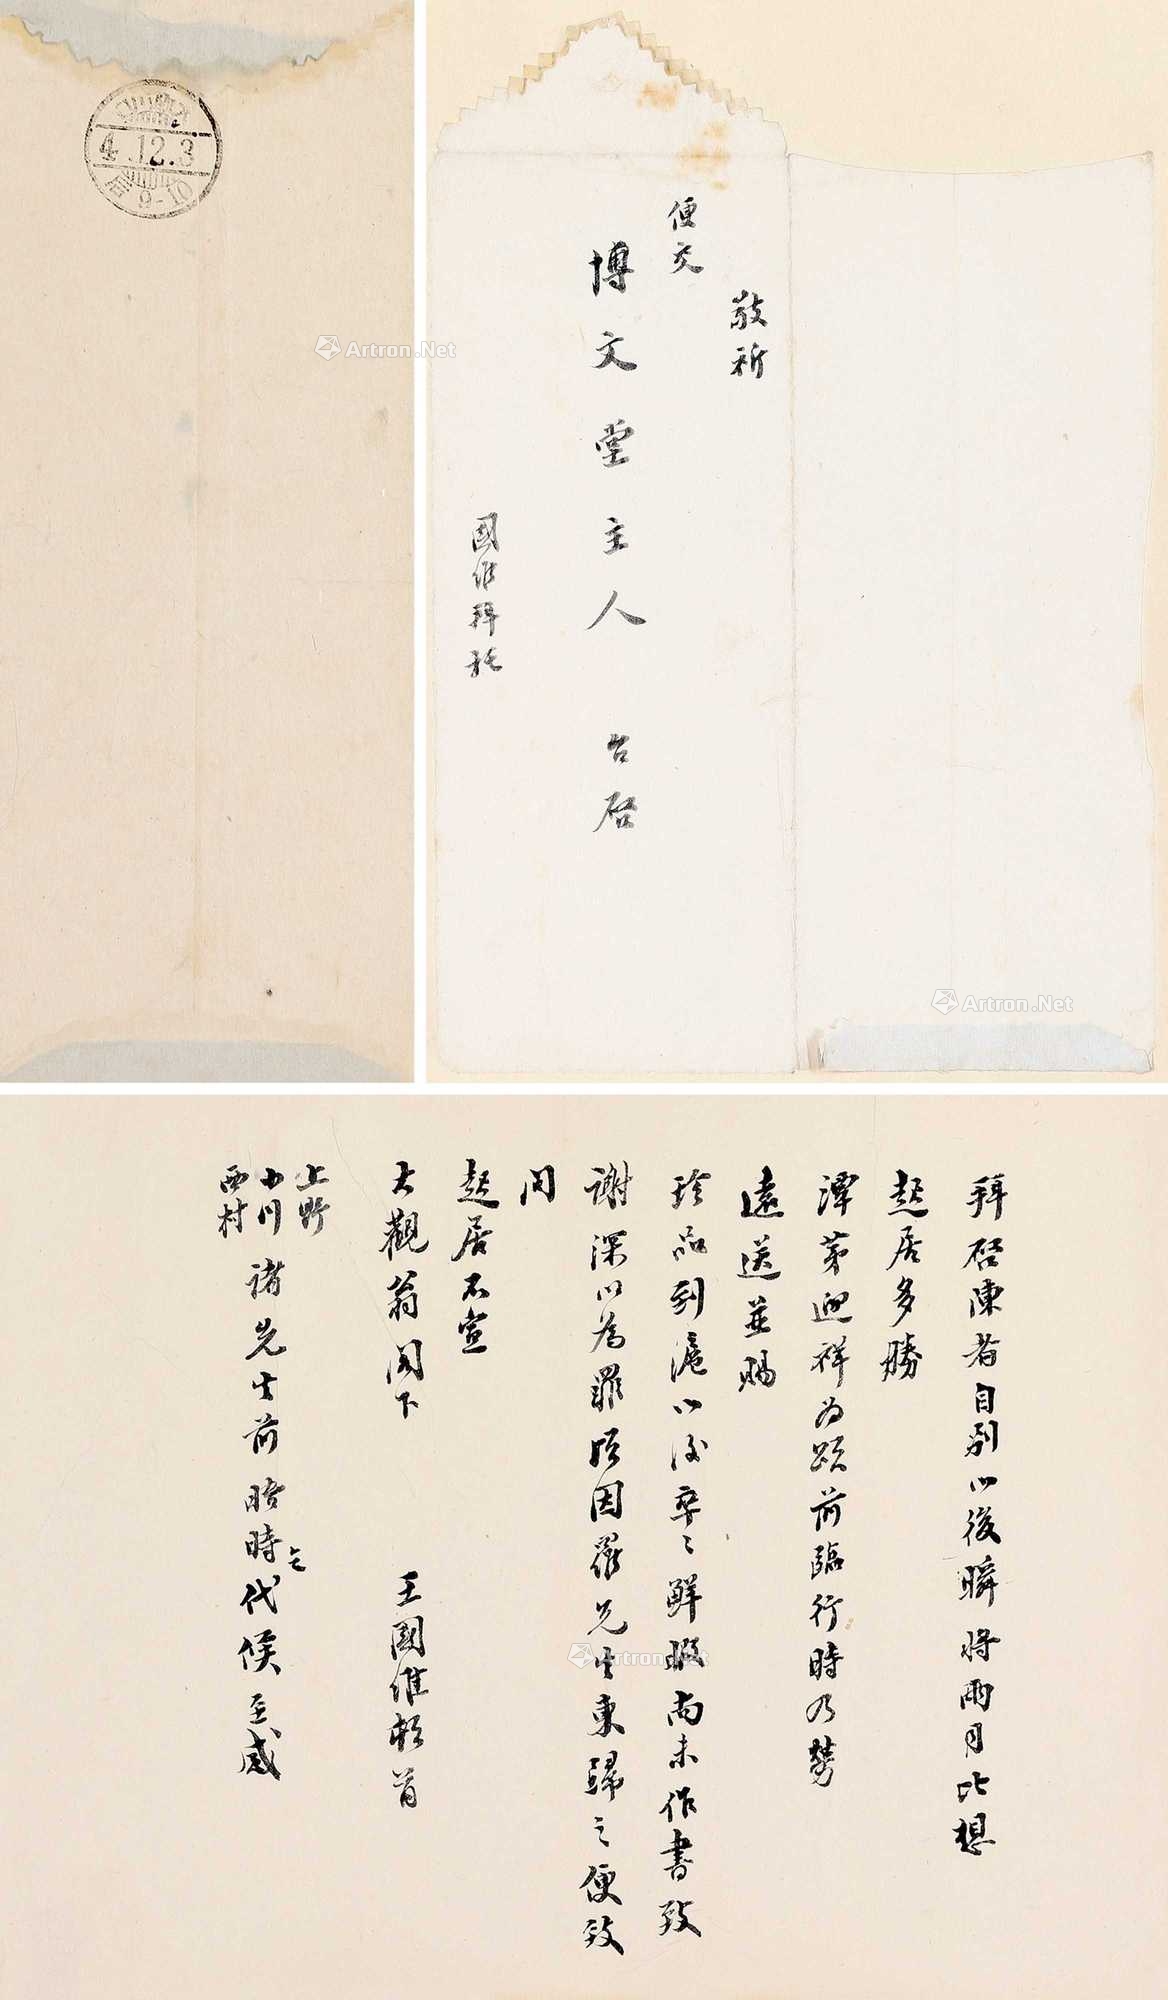 4.12.3
9-10
敬祈
便交
博文堂主人 台啓
國維拜託
拜啓陳者自別以後瞬將兩月比想
起居多勝
潭第迎祥為頌前臨行時乃勞
遠送並賜
珍品到滬以後卒卒鮮暇尚未作書致
謝深以為罪頃因羅先生東歸之便致
問
起居不宣
大觀翁閣下 王國維頓首
上野
小川
西村
諸先生前晤時乞代候至感
Artron.Net
Artron.Net
Artron.Net